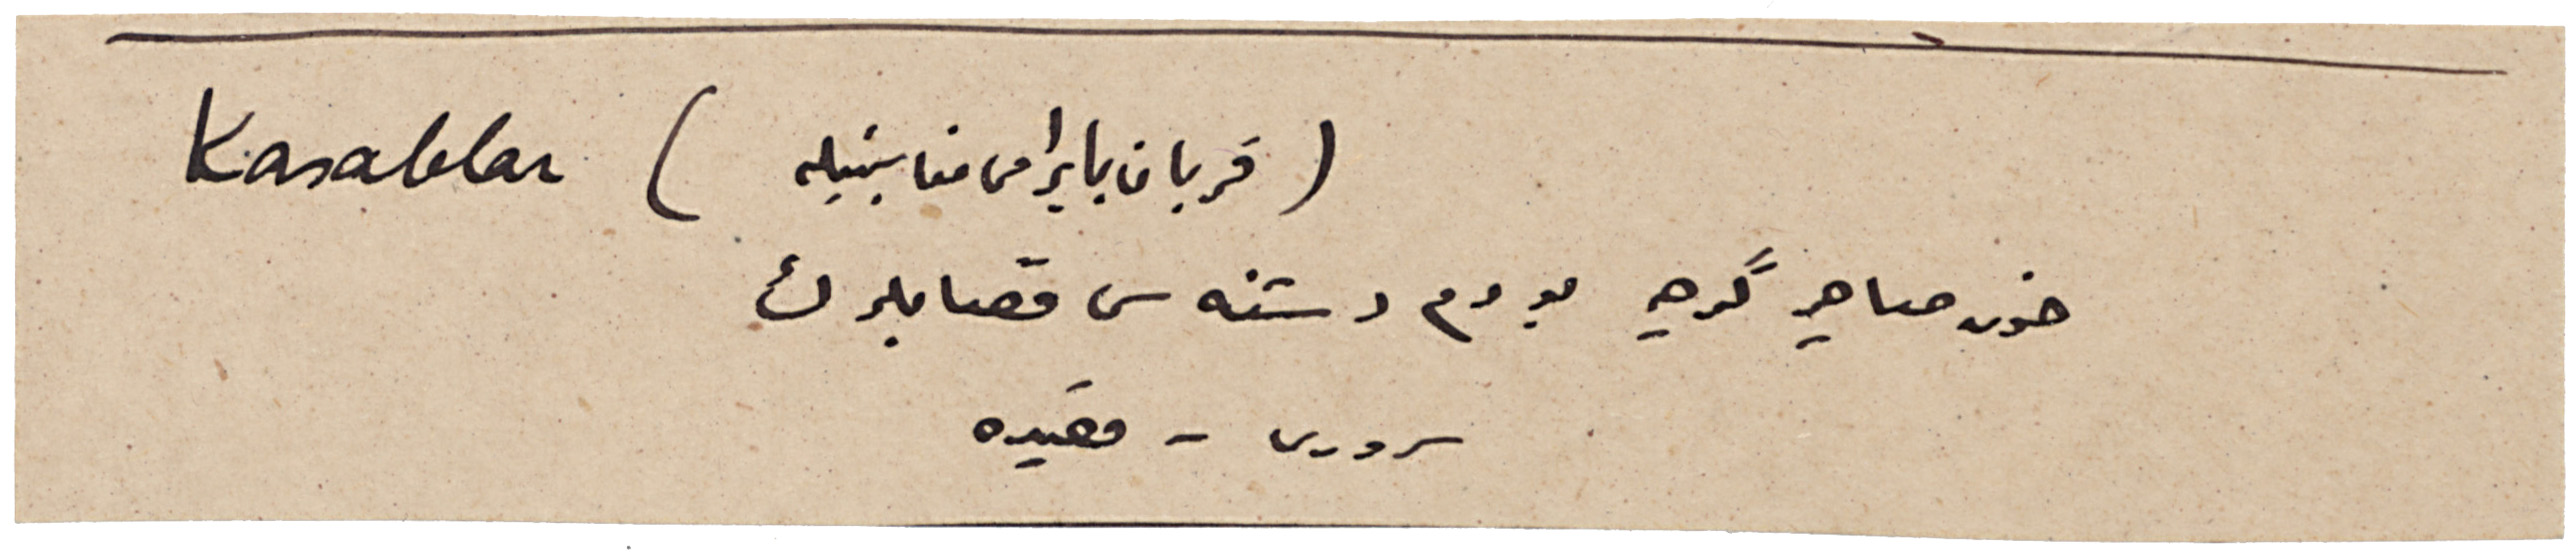 Kasablar (قربان بایرامی مناسبتیله)
خون صاچر گرچه بو دم دسته‌سی قصابلرك
سروری - قصیده